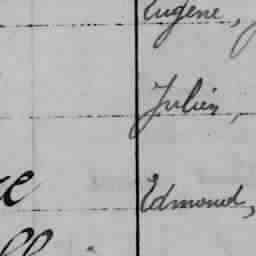 Eugène,
Julien,
Edmond,